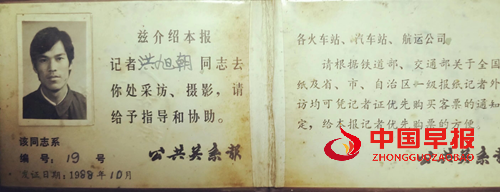 兹介绍本报
记者洪旭朝同志去
你处采访、摄影，请
给予指导和协助。
该同志系
编号：19号
公共关系报
发证日期：1988年10月
各火车站、汽车站、航运公司
请根据铁道部、交通部关于全国
纸及省、市、自治区一级报纸记者外
访均可凭记者证优先购买客票的通知
定，给本报记者优先购票的方便。
公共关系报
中国早报
ZHONGGUOZAOBAO